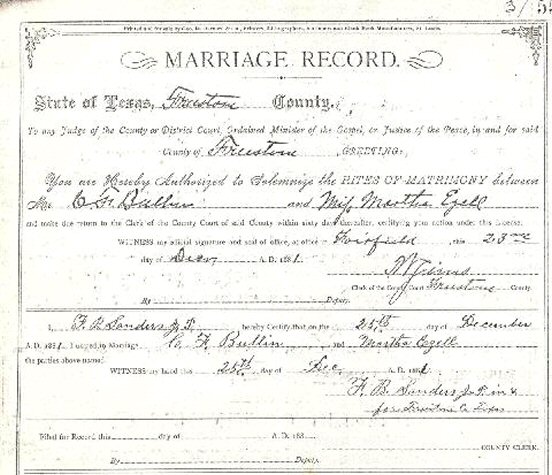 3/
MARRIAGE RECORD.
State of Texas, Freestone County.
To any Judge of the County or District Court, Ordained Minister of the Gospel, or Justice of the Peace, in and for said
County of Freestone GREETING:
You are Hereby Authorized to Solemnize the RITES OF MATRIMONY between
Mr. and Miss Martha Ezell
and make due return to the Clerk of the County Court of said County within sixty days thereafter, certifying your action under this License.
WITNESS my official signature and seal of office, at office in Fairfield this 23rd
day of A. D. 1881.
Clerk of the County Court Freestone County.
By Deputy.
I, F. B. Sanders J. P. hereby Certify that on the 25th day of December
A. D. 1881, I united in Marriage and Martha Ezell
the parties above named.
WITNESS my hand this 25th day of Dec A. D. 1881
F. B. Sanders J. P. in &
for Freestone Co Texas
Filed for Record this day of A. D. 188
COUNTY CLERK.
By Deputy.